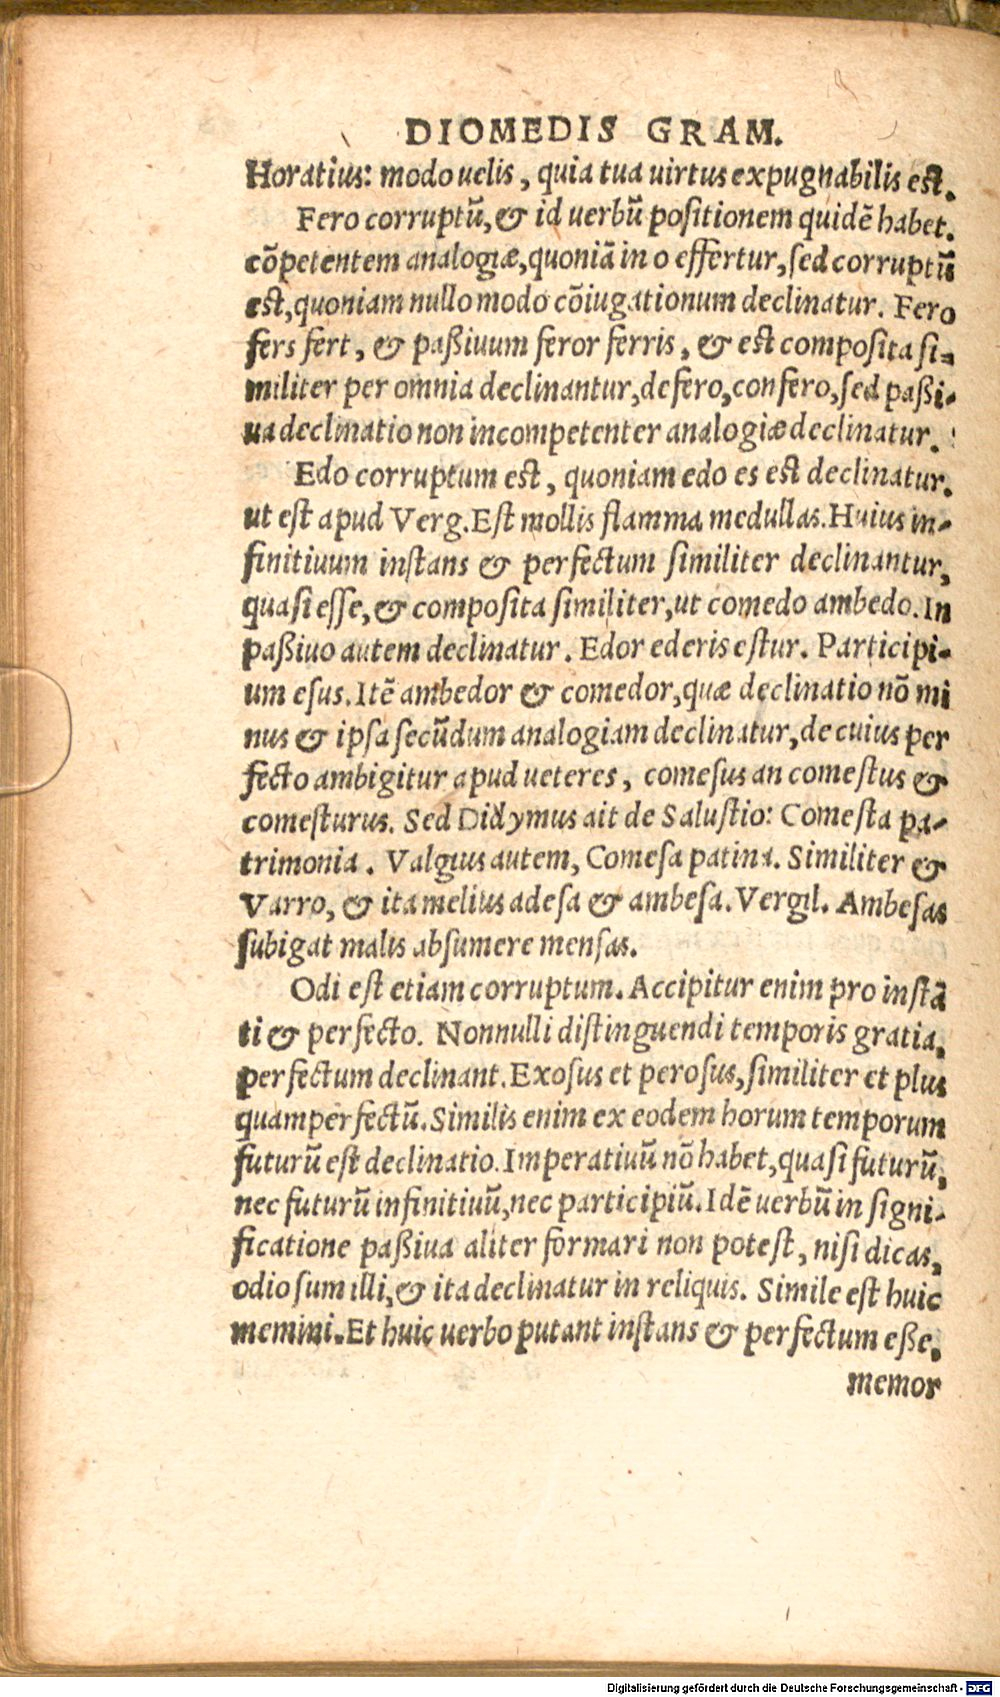 DIOMEDIS GRAM.
Horatius: modo uelis, quia tua uirtus expugnabilis est.
Fero corruptũ, & id uerbũ positionem quidẽ habet.
cõpetentem analogiæ, quoniã in o effertur, sed corruptũ
est, quoniam nullo modo cõiugationum declinatur. Fero
fers fert, & paßiuum feror ferris, & est composita si-
militer per omnia declinantur, defero, confero, sed paßi-
ua declinatio non incompetenter analogiæ declinatur.
Edo corruptum est, quoniam edo es est declinatur.
ut est apud Verg. Est mollis flamma medullas. Huius in-
finitiuum instans & perfectum similiter declinantur,
quasi esse, & composita similiter, ut comedo ambedo. In
paßiuo autem declinatur. Edor ederis estur. Participi-
um esus. Itẽ ambedor & comedor, quæ declinatio nõ mi
nus & ipsa secũdum analogiam declinatur, de cuius per
fecto ambigitur apud ueteres, comesus an comestus &
comesturus. Sed Didymus ait de Salustio: Comesta pa-
trimonia. Valgius autem, Comesa patina. Similiter &
Varro, & ita melius adesa & ambesa. Vergil. Ambesas
subigat malis absumere mensas.
Odi est etiam corruptum. Accipitur enim pro instã
ti & perfecto. Nonnulli distinguendi temporis gratia,
perfectum declinant. Exosus et perosus, similiter et plus
quamperfectũ. Similis enim ex eodem horum temporum
futurũ est declinatio. Imperatiuũ nõ habet, quasi futurũ,
nec futurũ infinitiuũ, nec participiũ. Idẽ uerbũ in signi-
ficatione paßiua aliter formari non potest, nisi dicas,
odio sum illi, & ita declinatur in reliquis. Simile est huic
memini. Et huic uerbo putant instans & perfectum eße,
memor
Digitalisierung gefördert durch die Deutsche Forschungsgemeinschaft - DFG